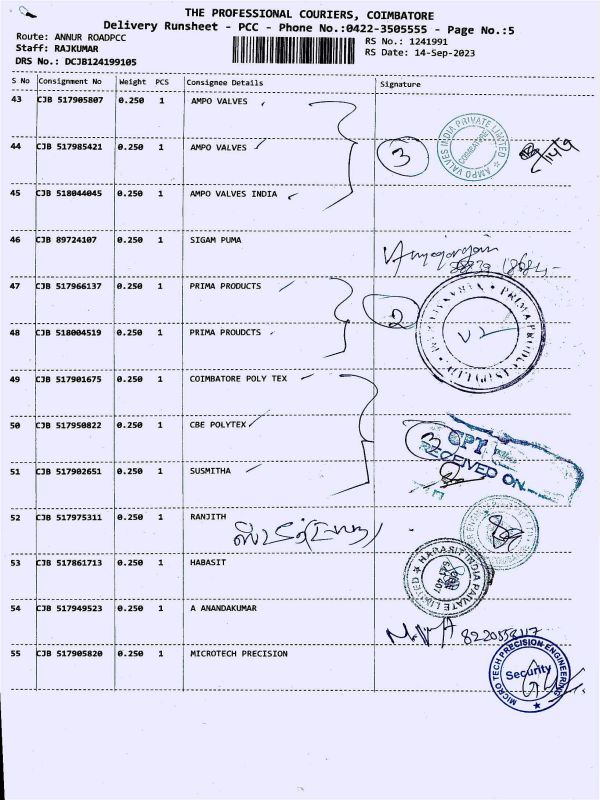 THE PROFESSIONAL COURIERS, COIMBATORE
Delivery Runsheet - PCC - Phone No.:0422-3505555 - Page No.:5
Route: ANNUR ROADPCC
RS No.: 1241991
Staff: RAJKUMAR
RS Date: 14-Sep-2023
DRS No.: DCJB124199105
S No Consignment No Weight PCS Consignee Details Signature
43 CJB 517905807 0.250 1 AMPO VALVES
44 CJB 517985421 0.250 1 AMPO VALVES 3
AMPO VALVES INDIA PRIVATE LIMITED
COIMBATORE
45 CJB 518044045 0.250 1 AMPO VALVES INDIA
46 CJB 89724107 0.250 1 SIGAM PUMA
47 CJB 517966137 0.250 1 PRIMA PRODUCTS
2
48 CJB 518004519 0.250 1 PRIMA PROUDCTS
49 CJB 517901675 0.250 1 COIMBATORE POLY TEX
50 CJB 517950822 0.250 1 CBE POLYTEX 3
CPT
RECEIVED ON
51 CJB 517902651 0.250 1 SUSMITHA
52 CJB 517975311 0.250 1 RANJITH
53 CJB 517861713 0.250 1 HABASIT
HABASIT INDIA PRIVATE LIMITED
54 CJB 517949523 0.250 1 A ANANDAKUMAR
55 CJB 517905820 0.250 1 MICROTECH PRECISION
MICRO TECH PRECISION ENGINEERING
Security